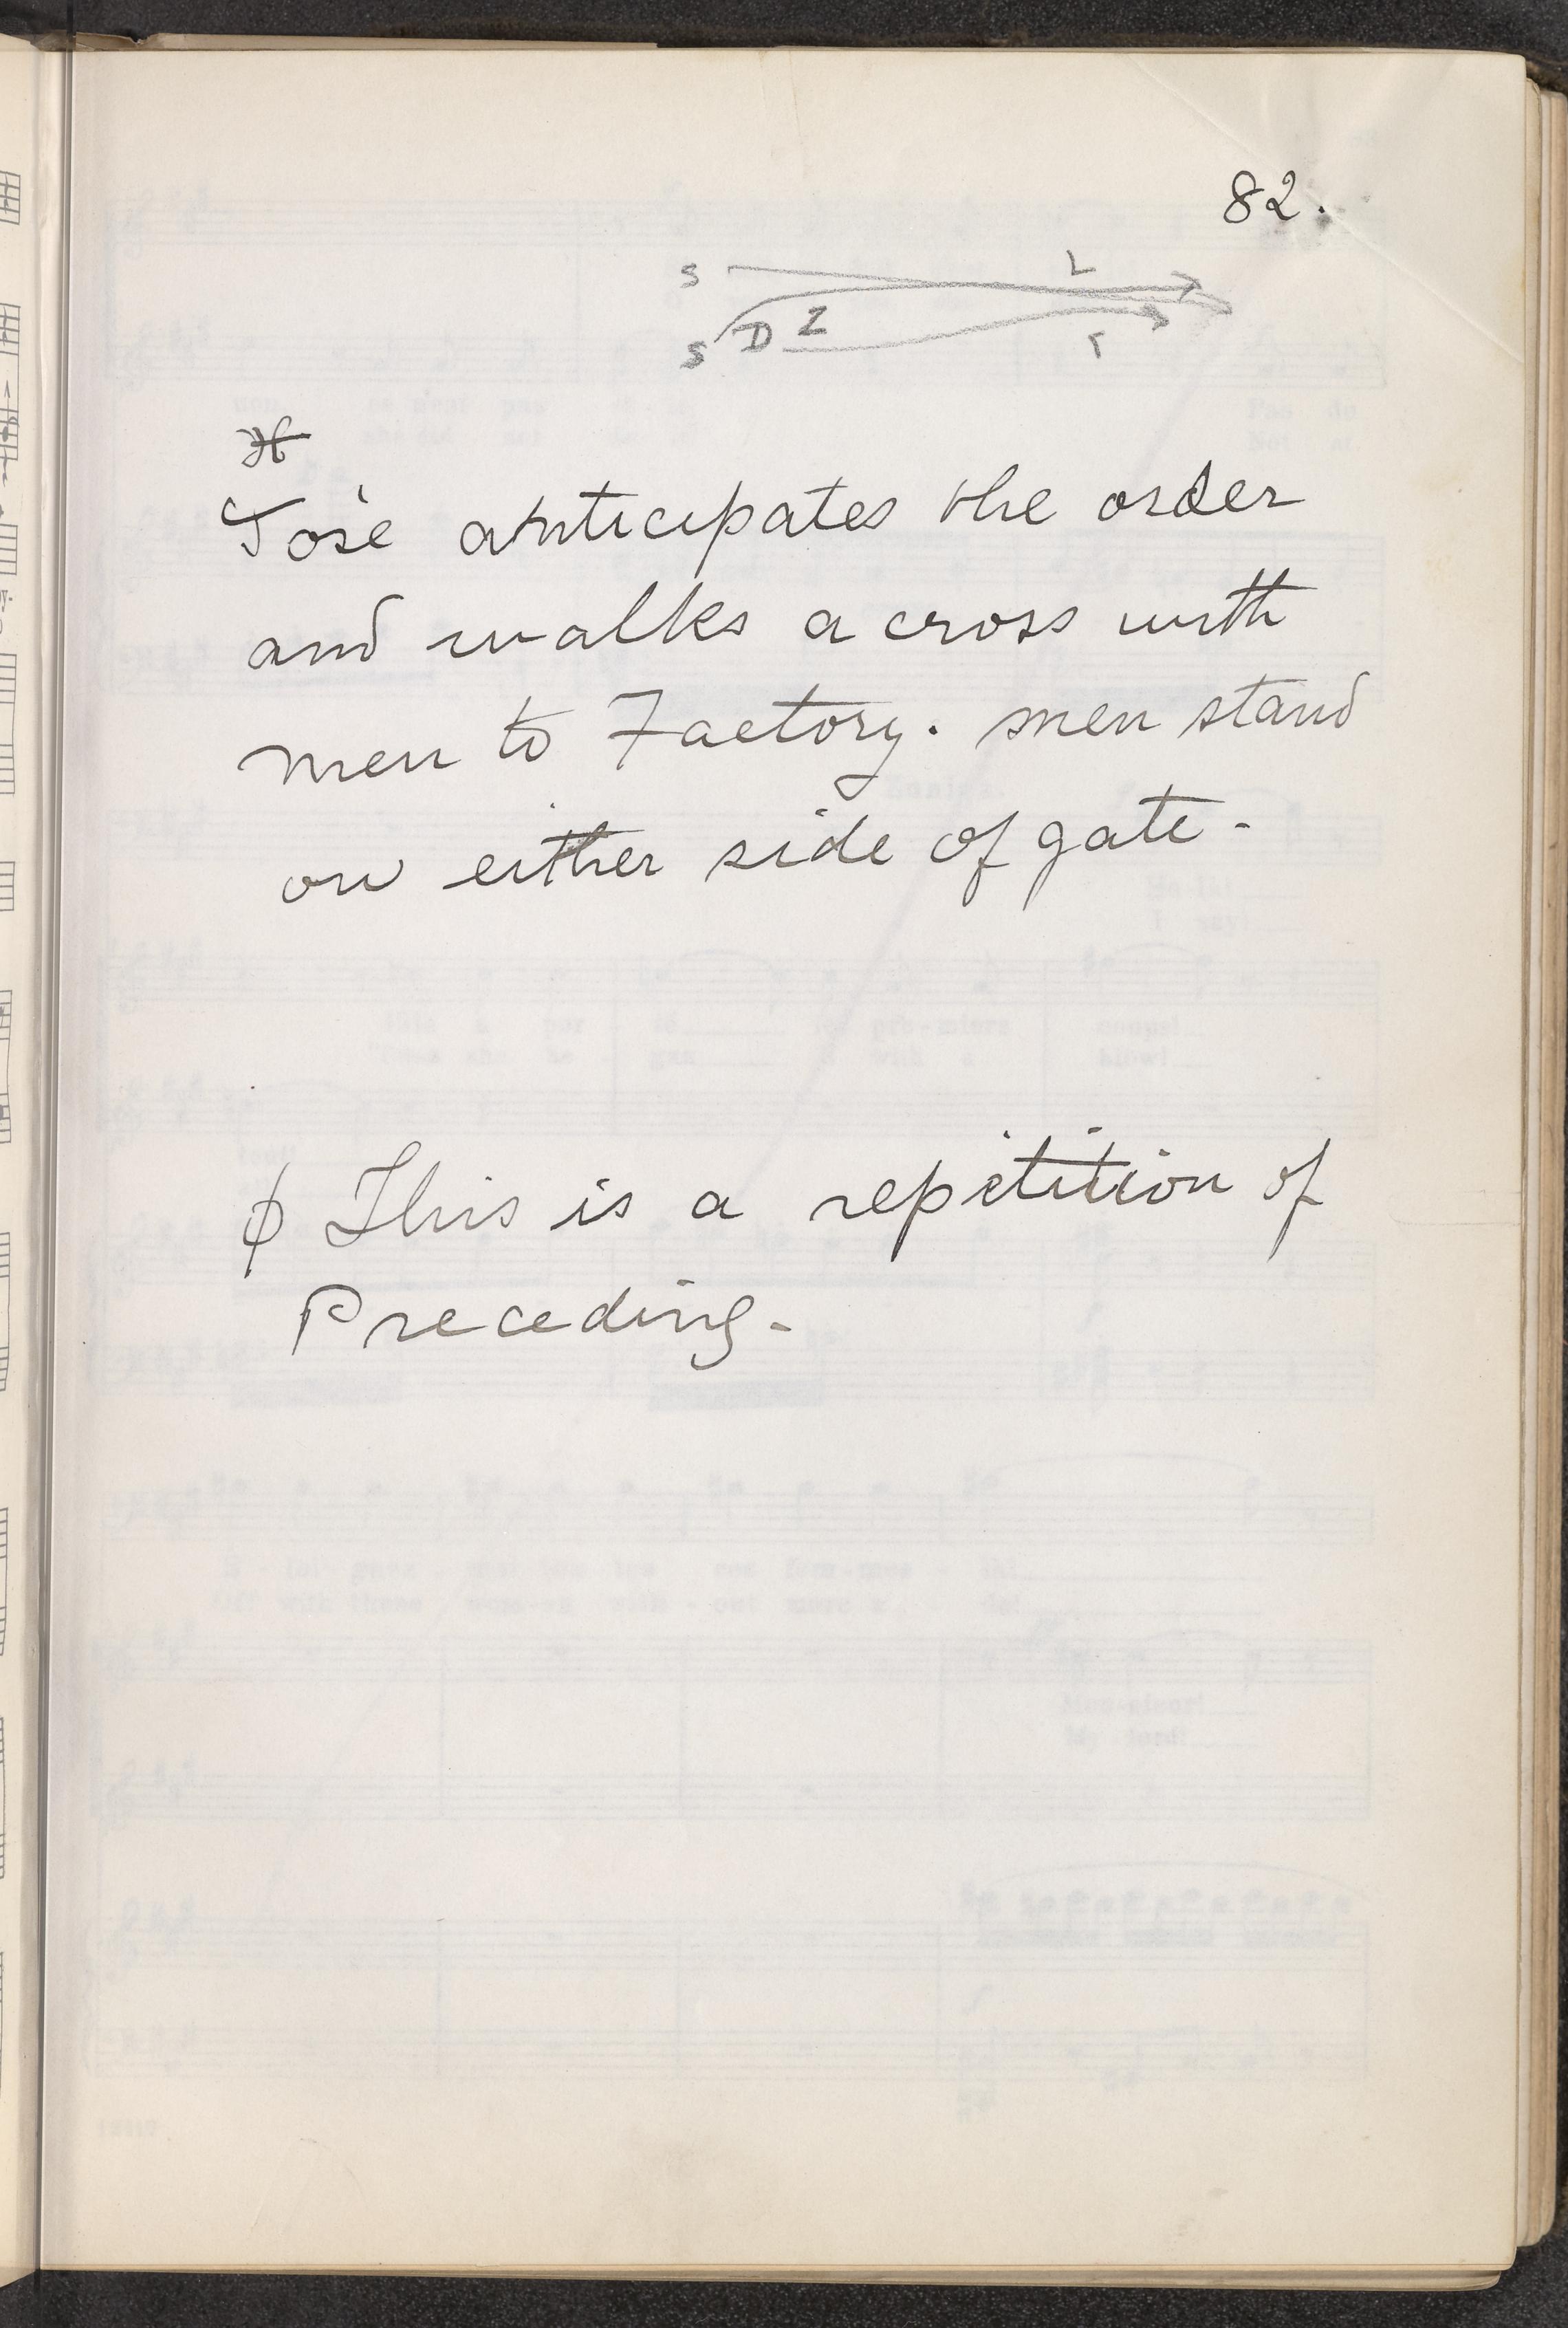 82.
S L
S D Z r
José anticipates the order
and walks across with
men to Factory. men stand
on either side of gate -
ϕ This is a repetition of
Preceding -